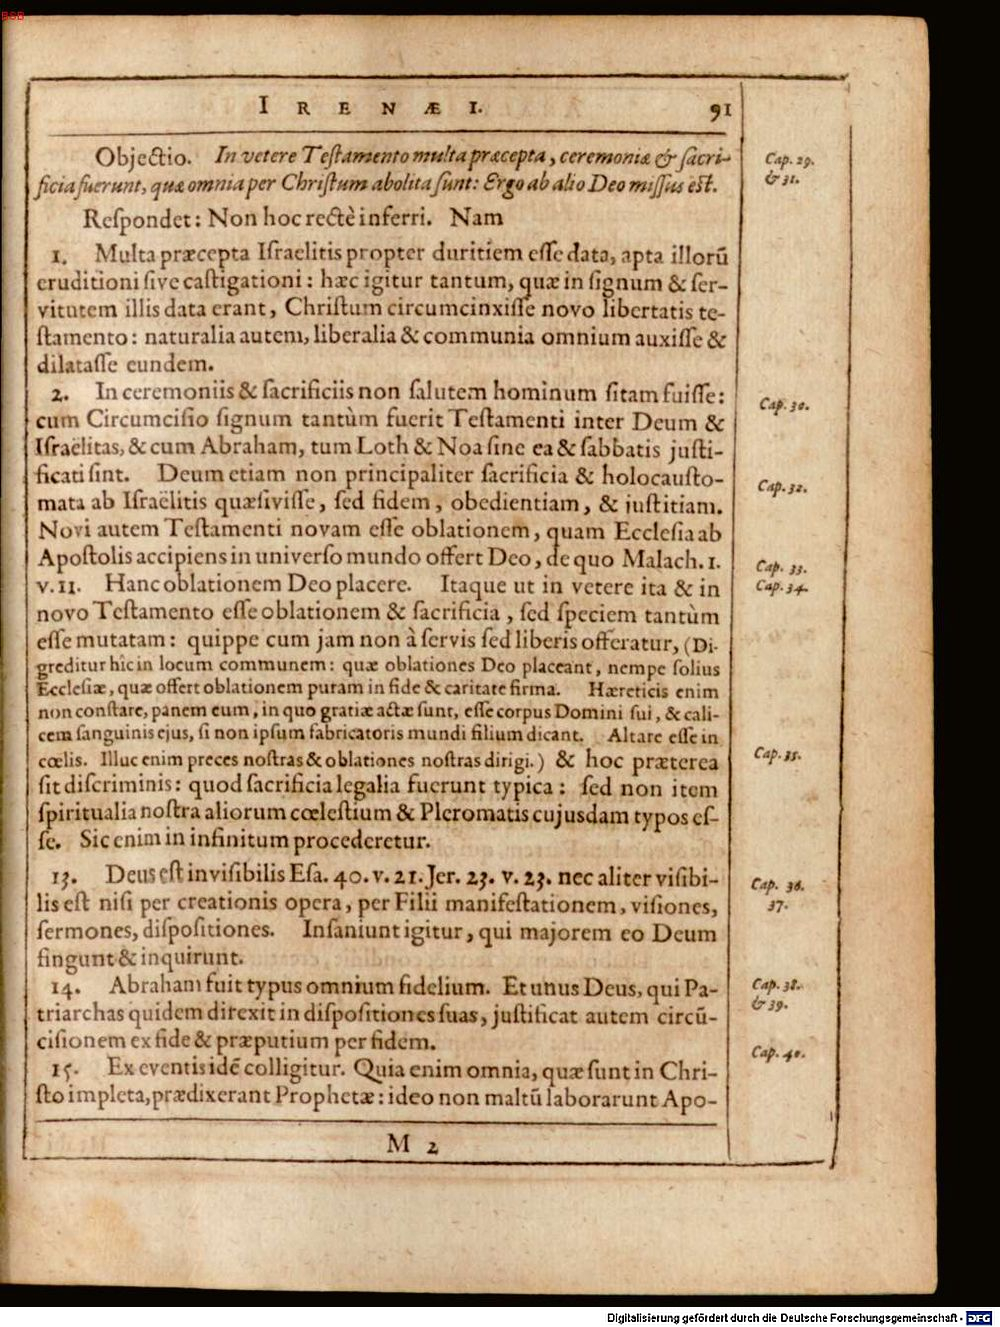 BSB
IRENÆ I. 91
Objectio. In vetere Testamento multa præcepta, ceremoniæ & sacri-
ficia fuerunt, quæ omnia per Christum abolita sunt: Ergo ab alio Deo missus est.
Cap. 29.
& 31.
Respondet: Non hoc rectè inferri. Nam
1. Multa præcepta Israelitis propter duritiem esse data, apta illorū
eruditioni sive castigationi: hæc igitur tantum, quæ in signum & ser-
vitutem illis data erant, Christum circumcinxisse novo libertatis te-
stamento: naturalia autem, liberalia & communia omnium auxisse &
dilatasse eundem.
2. In ceremoniis & sacrificiis non salutem hominum sitam fuisse:
Cap. 30.
cum Circumcisio signum tantùm fuerit Testamenti inter Deum &
Israëlitas, & cum Abraham, tum Loth & Noa sine ea & sabbatis justi-
ficati sint. Deum etiam non principaliter sacrificia & holocausto-
Cap. 32.
mata ab Israëlitis quæsivisse, sed fidem, obedientiam, & justitiam.
Novi autem Testamenti novam esse oblationem, quam Ecclesia ab
Apostolis accipiens in universo mundo offert Deo, de quo Malach. 1.
Cap. 33.
v. 11. Hanc oblationem Deo placere. Itaque ut in vetere ita & in
Cap. 34.
novo Testamento esse oblationem & sacrificia, sed speciem tantùm
esse mutatam: quippe cum jam non à servis sed liberis offeratur, (Di-
greditur hîc in locum communem: quæ oblationes Deo placeant, nempe solius
Ecclesiæ, quæ offert oblationem puram in fide & caritate firma. Hæreticis enim
non constare, panem eum, in quo gratiæ actæ sunt, esse corpus Domini sui, & cali-
cem sanguinis ejus, si non ipsum fabricatoris mundi filium dicant. Altare esse in
cœlis. Illuc enim preces nostras & oblationes nostras dirigi.) & hoc præterea
Cap. 35.
sit discriminis: quod sacrificia legalia fuerunt typica: sed non item
spiritualia nostra aliorum cœlestium & Pleromatis cujusdam typos es-
se. Sic enim in infinitum procederetur.
13. Deus est invisibilis Esa. 40. v. 21. Jer. 23. v. 23. nec aliter visibi-
Cap. 36.
lis est nisi per creationis opera, per Filii manifestationem, visiones,
37.
sermones, dispositiones. Insaniunt igitur, qui majorem eo Deum
fingunt & inquirunt.
14. Abraham fuit typus omnium fidelium. Et unus Deus, qui Pa-
Cap. 38.
triarchas quidem direxit in dispositiones suas, justificat autem circū-
& 39.
cisionem ex fide & præputium per fidem.
Cap. 40.
15. Ex eventis idē colligitur. Quia enim omnia, quæ sunt in Chri-
sto impleta, prædixerant Prophetæ: ideo non maltū laborarunt Apo-
M 2
Digitalisierung gefördert durch die Deutsche Forschungsgemeinschaft - DFG